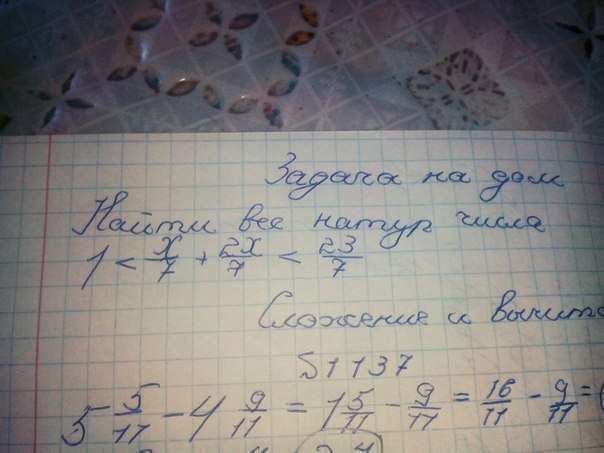 Задача на дом
Найти все натур числа
1 < x/7 + 2x/7 < 23/7
Сложение и вычита
51137
5 5/11 - 4 9/11 = 1 5/11 - 9/11 = 16/11 - 9/11 = (